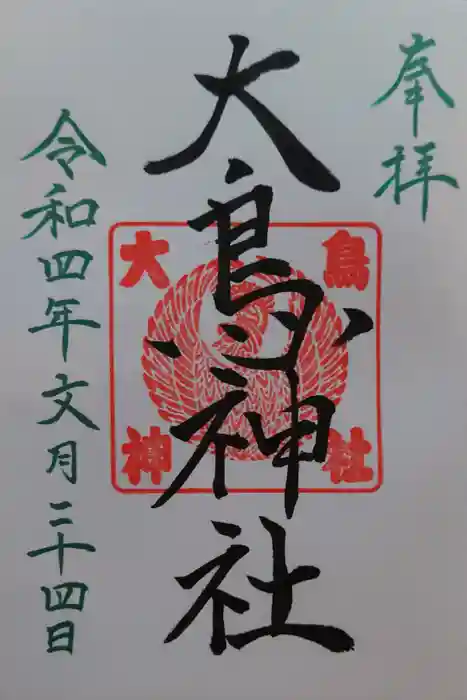 奉拝
大鳥神社
令和四年文月二十四日
大鳥
神社